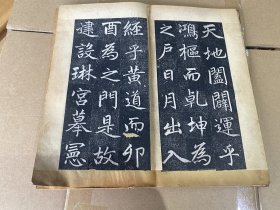 天地闔闢運乎
鴻樞而乾坤為
之戶日月出入
經乎黃道而卯
酉為之門是故
建設琳宮摹憲